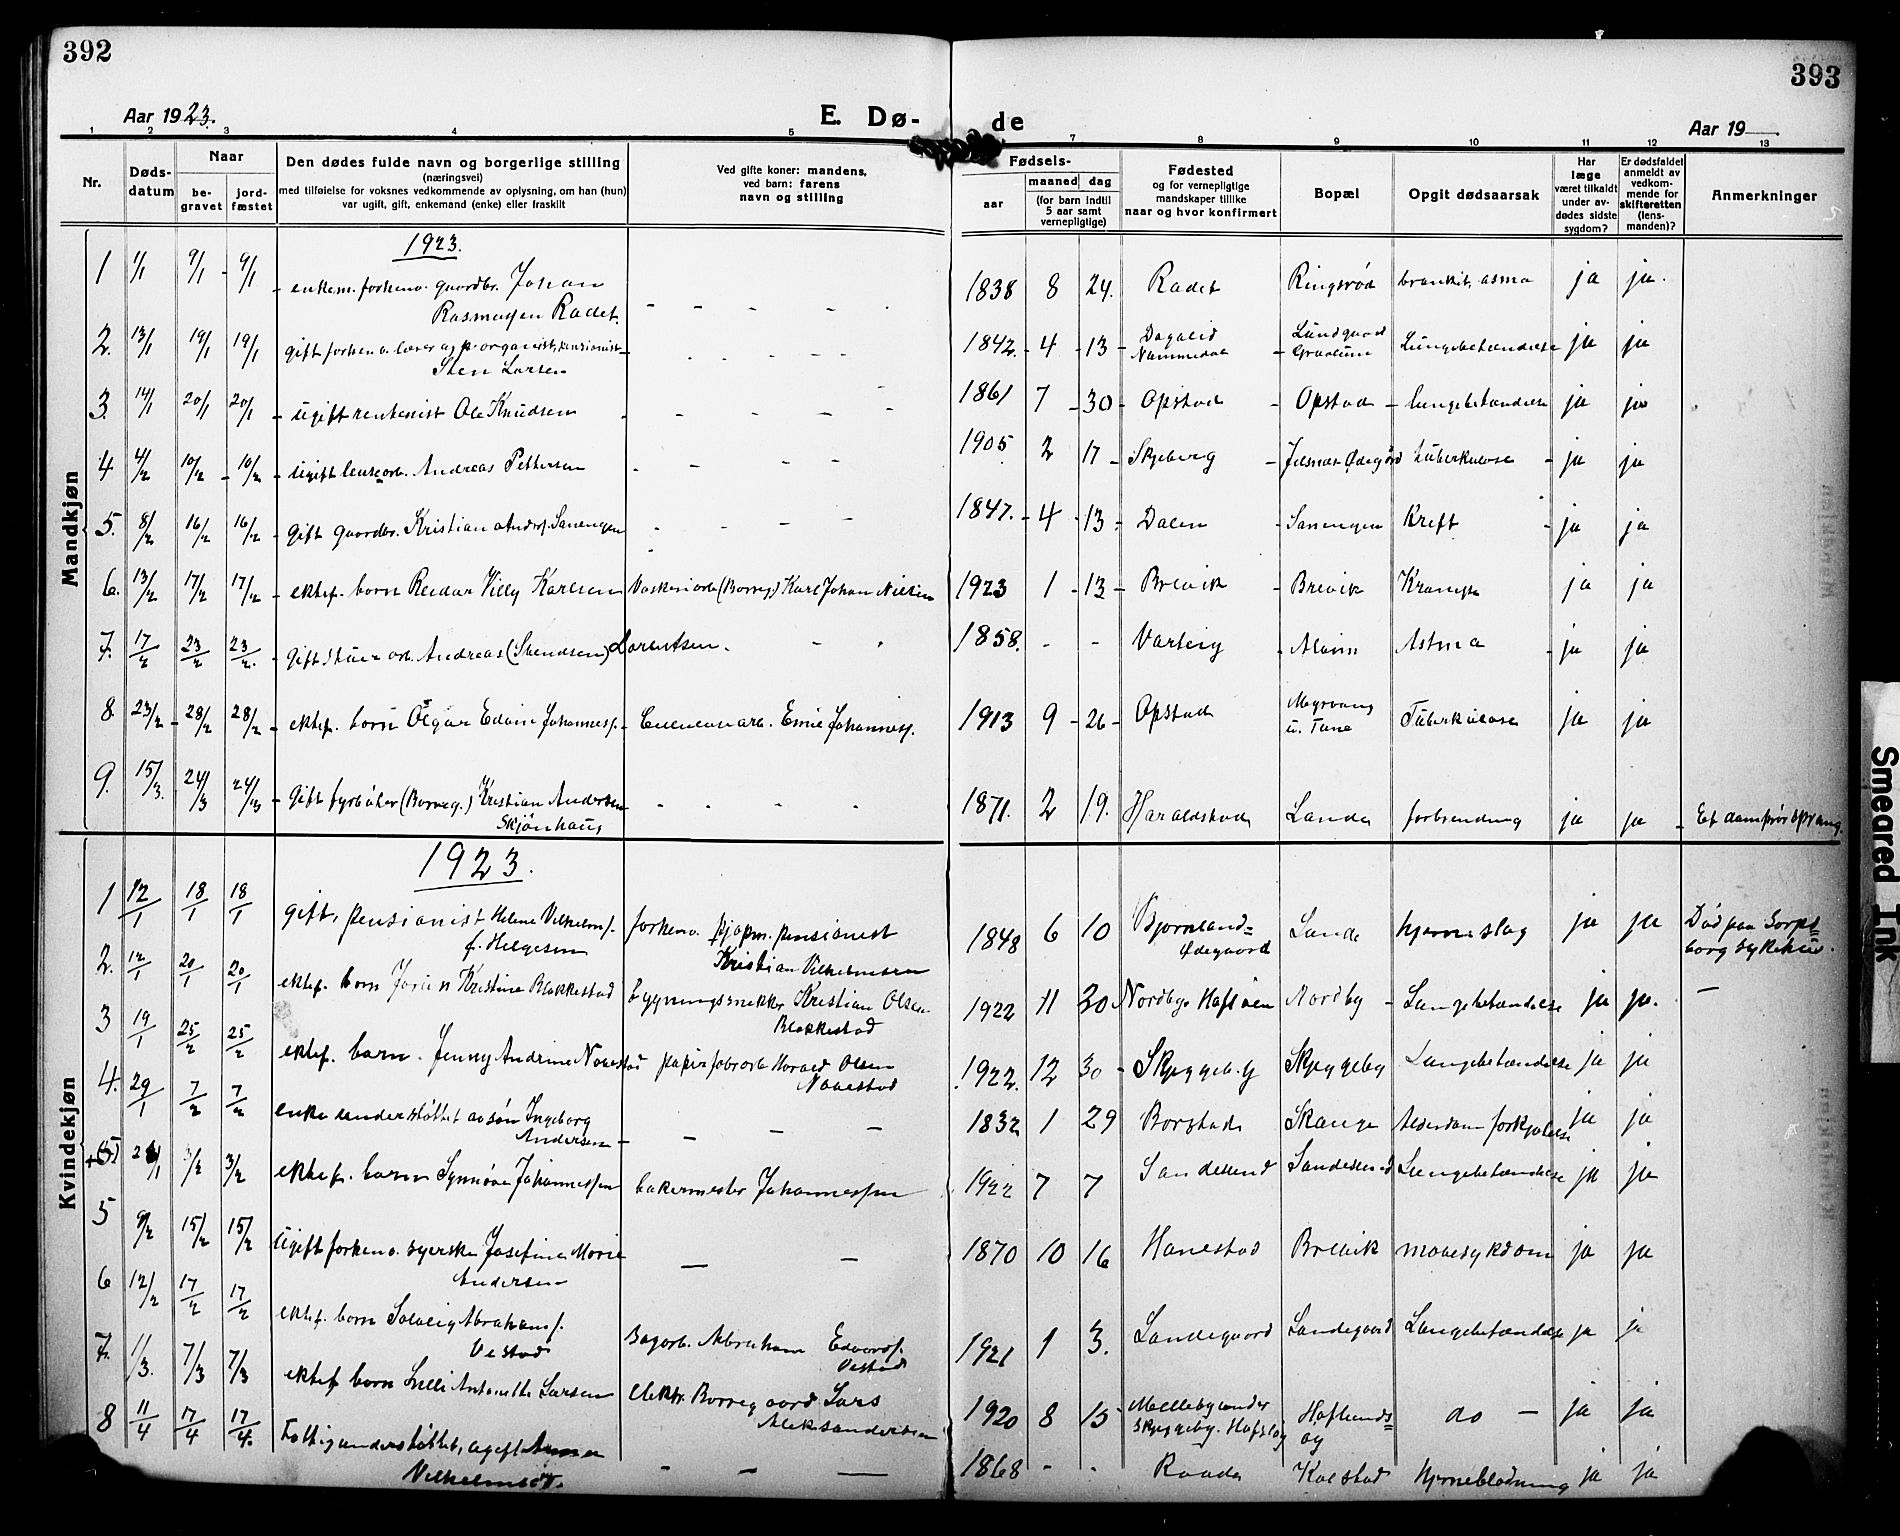 392
Aar 1923.
E. Dø-
1 2 3 4 5
Nr.
Døds-
datum
Naar
be-
gravet
jord-
fæstet
Den dødes fulde navn og borgerlige stilling
(næringsvei)
med tilføielse for voksnes vedkommende av oplysning, om han (hun)
var ugift, gift, enkemand (enke) eller fraskilt
Ved gifte koner: mandens,
ved barn: farens
navn og stilling
Mandkjøn
1923.
1 1/1 9/1 - 9/1 - enkem. forhenv. gaardbr. Johan
Rasmussen Radet.
2. 13/1 19/1 19/1 gift forhenv. lærer og organist, pensionist
Sten Larsen
3. 14/1 20/1 20/1 - ugift rentenist Ole Knudsen
4 4/2 10/2 - 10/2 - ugift løsearb. Andreas Pettersen
5. 8/2 16/2 16/2 - gift gaardbr. Kristian Andrs. Sanengen
6. 13/2 17/2 17/2 - ektef. barn Reidar Villy Karlsen Vaskeriarb (Borreg.) Karl Johan Nilsen
7. 17/2 23/2 23/2. gift stuerarb. Andreas (Svendsen) Lorentsen.
8. 23/2 - 28/2 28/2 - ektef. barn Olgar Edvin Johanness. - Johanness.
9. 15/3. 24/3 24/3 - gift fyrbøter (Borreg.) Kristian Andersen
Skjønhaug
Kvindekjøn
1923.
1 12/1 18/1 18/1 gift, pensionist Helene Vilhelms. forhenv. pensionist
f. Helgesen Kristian Vilhelmsen
2. 12/1 20/1 20/1 ektef. barn Kristine Blakkestad bygningssnekker Kristian Olsen
Blakkestad
3 19/1 25/2 25/2 ektef. barn. Jenny Andrine Navestad papirfabrarb Harald Olsen
Navestad
4. 29/1 7/2 7/2 enke understøttet av søn Ingeborg
Andersen
5 3/2 3/2 ektef. barn Synnøve Johannessen bakermester Johannessen
5 9/2 15/2 15/2 ugift forhenv. syerske Josefine Marie
Andersen
6 12/2 17/2 17/2 ektef. barn Solveig Abrahams. Sagarb. Abraham Edvards.
Vestad Vestad
7. 1/3. 7/3 7/3 ektef barn Lilli Antonette Larsen elektr. Borregaard Lars
Aleksandersen
8 11/4 17/4 17/4. Fattigunderstøttet, ugift Anna
Vilhelmsdt.
393
de
Aar 19
7 8 9 10 11 12 13
Fødsels-
aar
maaned
dag
(for barn indtil
5 aar samt
vernepligtige)
Fødested
og for vernepligtige
mandskaper tillike
naar og hvor konfirmert
Bopæl
Opgit dødsaarsak
Har
læge
været tilkaldt
under av-
dødes sidste
sygdom?
Er dødsfaldet
anmeldt av
vedkom-
mende for
skifteretten
(lens-
manden)?
Anmerkninger
1838 8 24. Radet Ringsrød bronkit, asma ja ja.
1842. - 4 - 13 - Nammedal - Lundgaard Graalum Lungebetændelse ja ja
1861 7 - 30 - Opstad - Opstad - lungebetændelse ja ja
1905 2 17 - Skjeberg - Ødegård tuberkulose - ja ja
1847. - 4 - 13 - Dalen - Sanengen Kreft - ja ja
1923 1 - 13 - Brevik - Brevik Krampe ja ja
1858. - - Varteig - Alvim Astma - ja ja
1913 9 - 26 - Opstad Myrvang i. Tune Tuberkulose ja ja
1871. 2 19. Haraldstad Lande forbrending ja ja - Et damprør sprang.
1848 6 10 Bjørnland= Ødegaard Lande hjerneslag ja ja Død paa Sarps=
borg sykehus.
1922 11 30 Nordby. Hafslöen Nordby - Lungebetændelse ja ja. —
1922. 12 30 - Skjeggeby Skjeggeby Lungebetændelse ja ja
1832 1 29 Borstad Skange Alderdom forkjølelse ja ja
1922 7 7 Sandesund Sandesund Lungebetændelse ja ja
1870 10 16 Hanestad Brevik mavesykdom ja ja
1921 1 3. Landegaard Landegaard Lungebetændelse ja ja
1920 8 15 Mellebyunder Skjeggeby. Hafslög Haflunds= øy do — ja ja
1868 - - Raade Kalstad Hjerneblødning ja ja
Smeared Ink